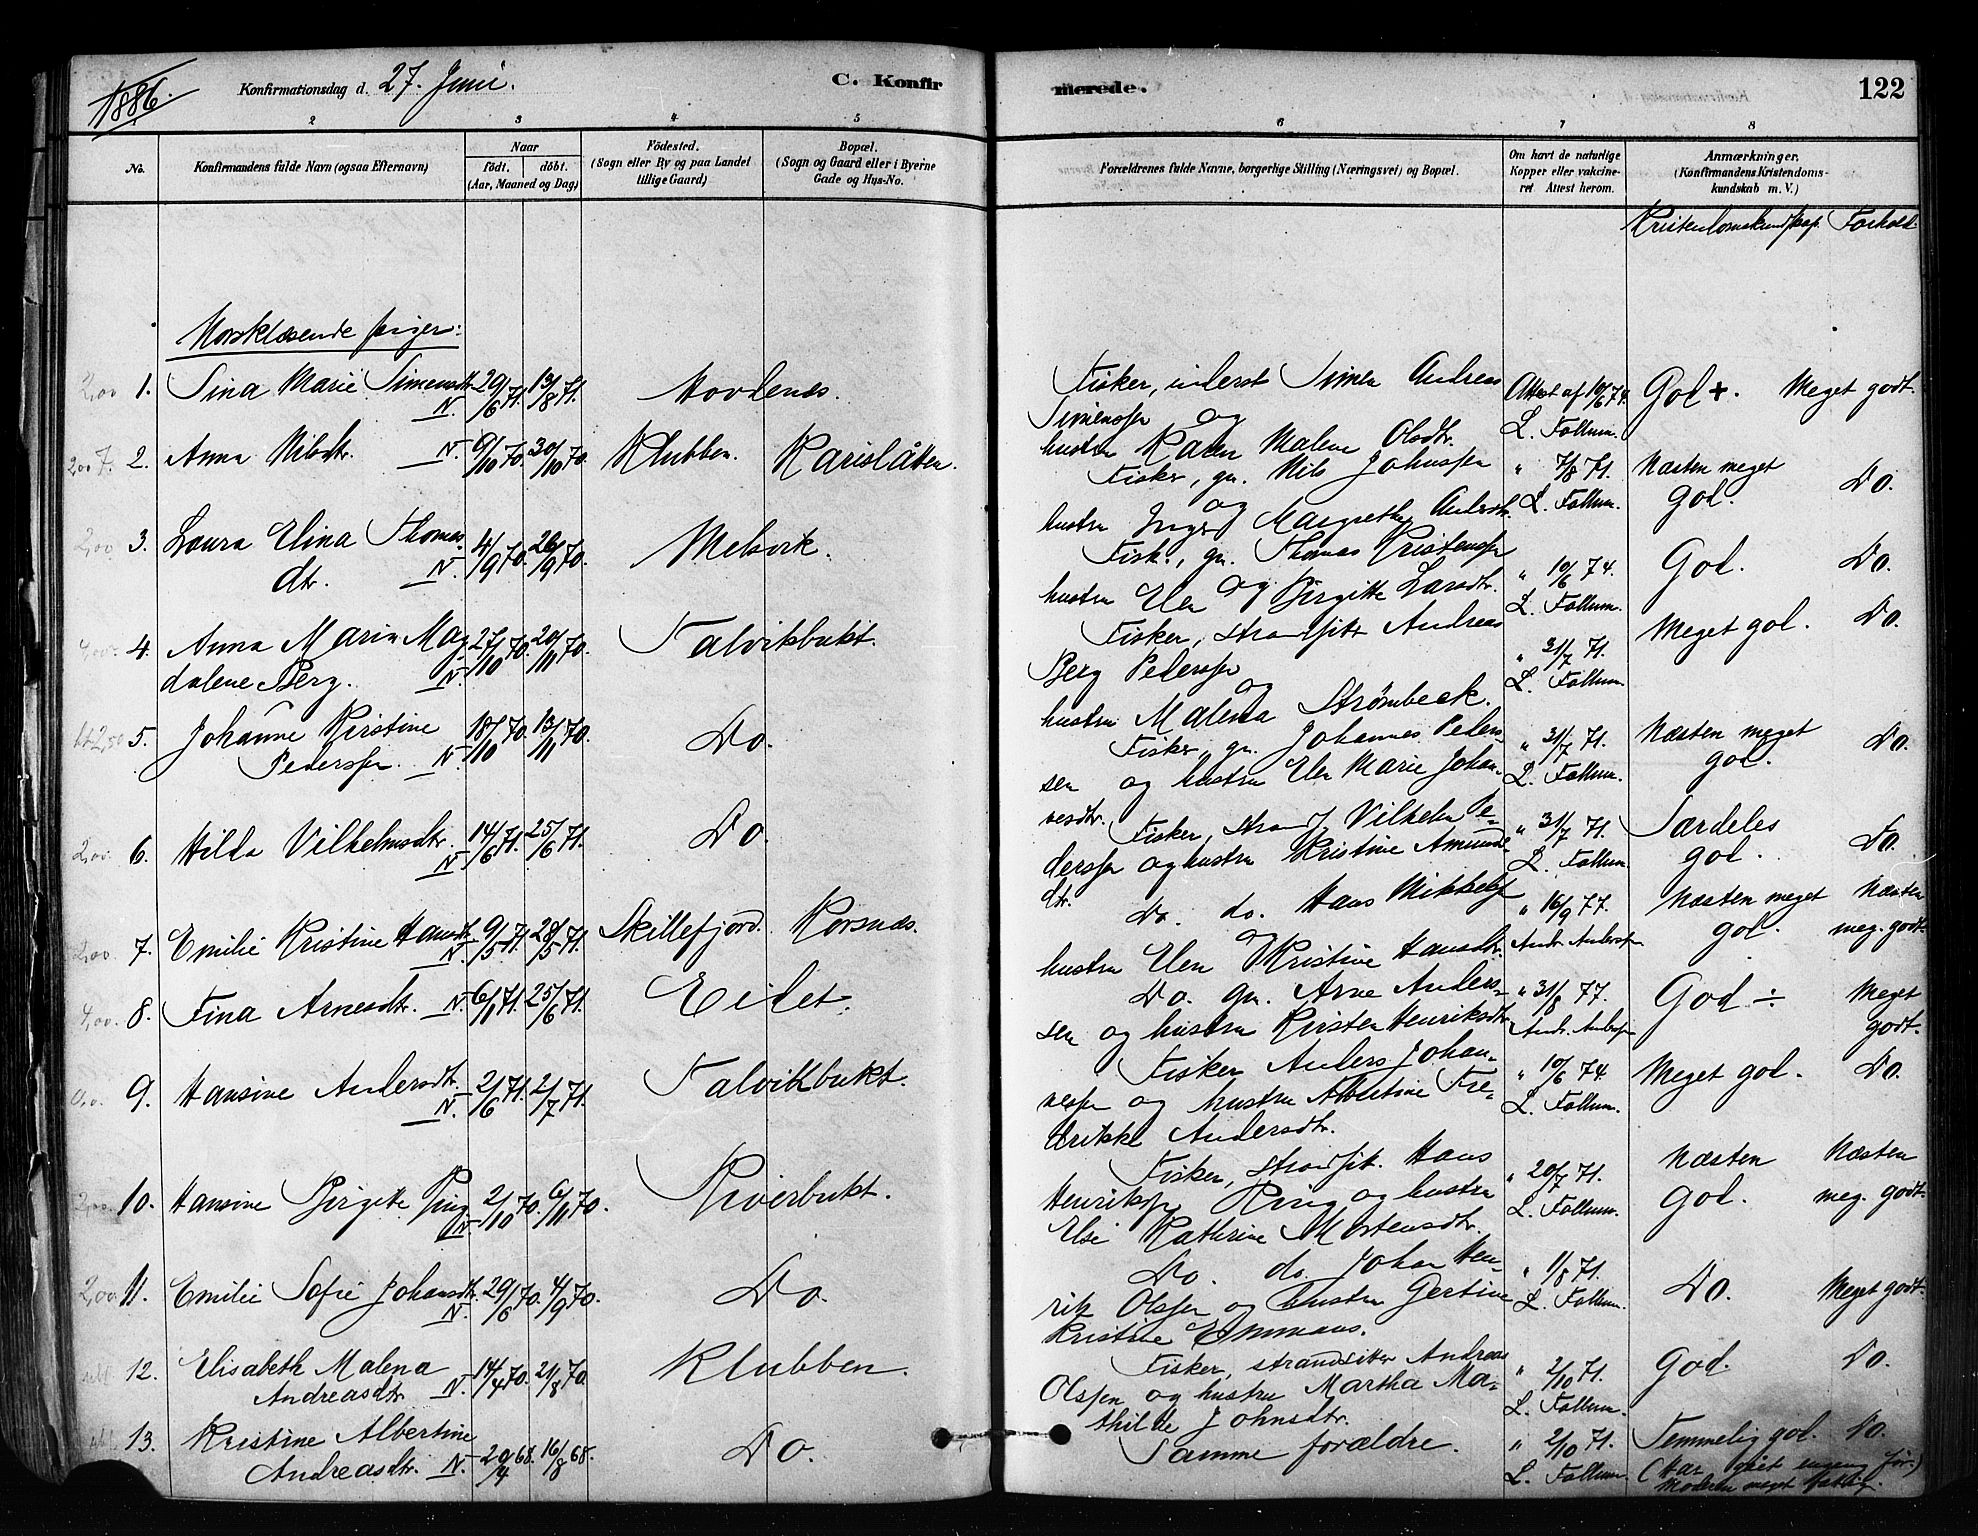 1886.
Konfirmationsdag d. 27. Juni.
C. Konfirmerede.
122
2 3 4 5 6 7 8
No.
Konfirmandens fulde Navn (ogsaa Efternavn)
Naar
født. døbt.
(Aar, Maaned og Dag)
Fødested.
(Sogn eller By og paa Landet
tillige Gaard)
Bopæl.
(Sogn og Gaard eller i Byerne
Gade og Hus-No.
Forældrenes fulde Navne, borgerlige Stilling (Næringsvei) og Bopæl.
Om havt de naturlige
Kopper eller vakcine-
ret Attest herom.
Anmærkninger.
(Konfirmandens Kristendoms-
kundskab m. V.)
Kristendomskundskap. Forhold.
Norsklæsende piger:
2,00 1. Sina Marie Simensdtr. N. 29/6 71. 13/8 71. Hovdenes.
Fisker, inderst Simen Andreas
Simenssen og
hustru Karen Malene Olsdtr.
Attest af 10/6 74.
L. Follum.
God +. Meget godt.
2. Anna Nilsdtr. N. 9/10 70. 30/10 70. Klubben. Karislåtten.
Fisker, gm. Nils Johnssen
og
hustru Inger Margrethe Andersdtr.
" 7/8 71.
L. Follum.
Næsten meget
god. Do.
2,00 3. Laura Elina Thomas
dtr. N. 4/9 70. 26/9 70. Melsvik.
Fisk., gm. Thomas Kristenssen
og
hustru Elen Birgitte Larsdtr.
" 10/6 74.
L. Follum.
God. Do.
4,00. 4. Anna Maria Mag
dalene Berg. N. 27/10 70. 20/11 70. Talvikbukt.
Fisker, strandsitt. Andreas
Berg Pederssen
og
hustru Malena Strømbeck.
" 31/7 71.
L. Follum.
Meget god. Do.
5. Johanne Kirstine
Pederssen. N. 18/10 70. 13/11 70. Do.
Fisker, gm. Johannes Peders-
sen og hustru Elen Marie Johan-
nesdtr.
" 31/7 71.
L. Follum.
Næsten meget
god. Do.
2,00. 6. Hilda Vilhelmsdtr. N. 14/6 71. 25/6 71. Do.
Fisker, strands. Vilhelm Pe-
derssen og hustru Kristine Amunds-
dtr.
" 31/7 71.
L. Follum.
Særdeles
god. Do.
2,00. 7. Emilie Kristine Hansdtr. N. 9/5 71. 28/5 71. Skillefjord. Korsnes.
Do. do. Hans Mikkelss.
og
hustru Elen Kristine Hansdtr.
" 16/9 77.
Andr. Anderssen
Næsten meget
god. Næsten
meg. godt.
4,00. 8. Fina Arnesdtr. N. 6/1 71. 25/6 71. Eidet.
Do. gm. Arne Anders-
sen og hustru Kirsten Henriksdtr.
" 31/8 77.
Andr. Anderssen
God ÷ Meget
godt.
9. Hansine Andersdtr. N. 2/6 71. 2/7 71. Talvikbukt.
Fisker Anders Johan-
nessen og hustru Albertine Fre-
drikke Andersdtr.
" 10/6 74.
L. Follum.
Meget god. Do.
2,00. 10. Hansine Birgitte Ring N. 2/10 70. 6/11 70. Kviverbukt.
Fisker, strandsit. Hans
Henrikssen Ring og hustru
Else Kathrine Mortensdtr.
" 20/7 71.
L. Follum.
Næsten
god. Næsten
meg. godt.
2,00 11. Emilie Sofie Johansdtr. N. 29/6 70. 4/9 70. Do.
Do. do. Johan Hen-
rik Olssen og hustru Gertine
Kristine Emmaus.
" 1/8 71.
L. Follum.
Do. Meget godt.
12. Elisabeth Malena
Andreasdtr. N. 14/4 70. 21/8 70. Klubben.
Fisker, strandsitter Andreas
Olssen og hustru Martha Ma-
thilde Johnsdtr.
" 2/10 71.
L. Follum.
God. Do.
13. Kristine Albertine
Andreasdtr. N. 20/4 68. 16/8 68. Do.
Samme forældre.
" 2/10 71.
L. Follum.
Temmelig god. Do.
(Har gået engang før.)
Moderen meget fattig.